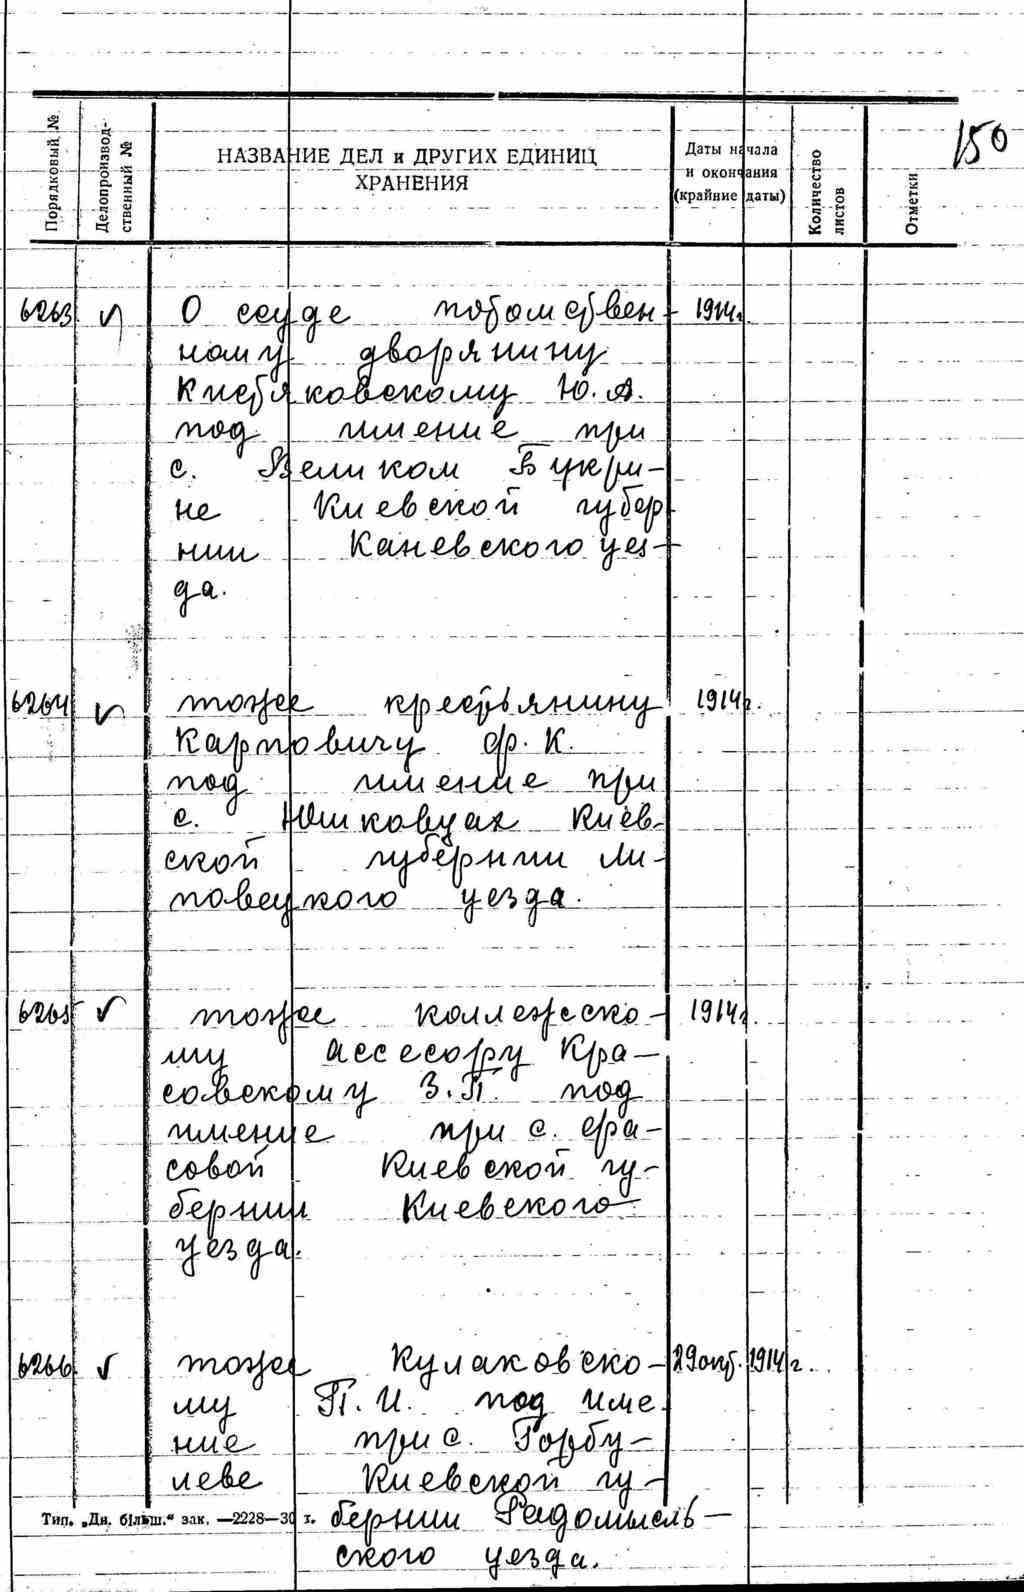 150
Порядковый №
Делопроизвод-
ственный №
НАЗВАНИЕ ДЕЛ и ДРУГИХ ЕДИНИЦ
ХРАНЕНИЯ
Даты начала
и окончания
(крайние даты)
Количество
листов
Отметки
6263 О ссуде потомствен- 1914г.
ному дворянину
Кистяковскому Ю.А.
под имение при
с. Великом Букри-
не Киевской губер
нии Каневского уез-
да.
6264 тоже крестьянину 1914г.
Карповичу Ф.К.
под имение при
с. Юшковцах Киев-
ской губернии Ли-
повецкого уезда.
6265 тоже коллежско- 1914г.
му ассесору Кра-
совскому З.П. под
имение при с.
совой Киевской гу-
бернии Киевского
уезда.
6266 тоже Кулаковско- 29 окт. 1914г.
му П.И. под име
ние при с. Горбу-
леве Киевской гу-
Тип. „Дн. більш.“ зак. —2228—30 т. бернии Радомысль-
ского уезда.